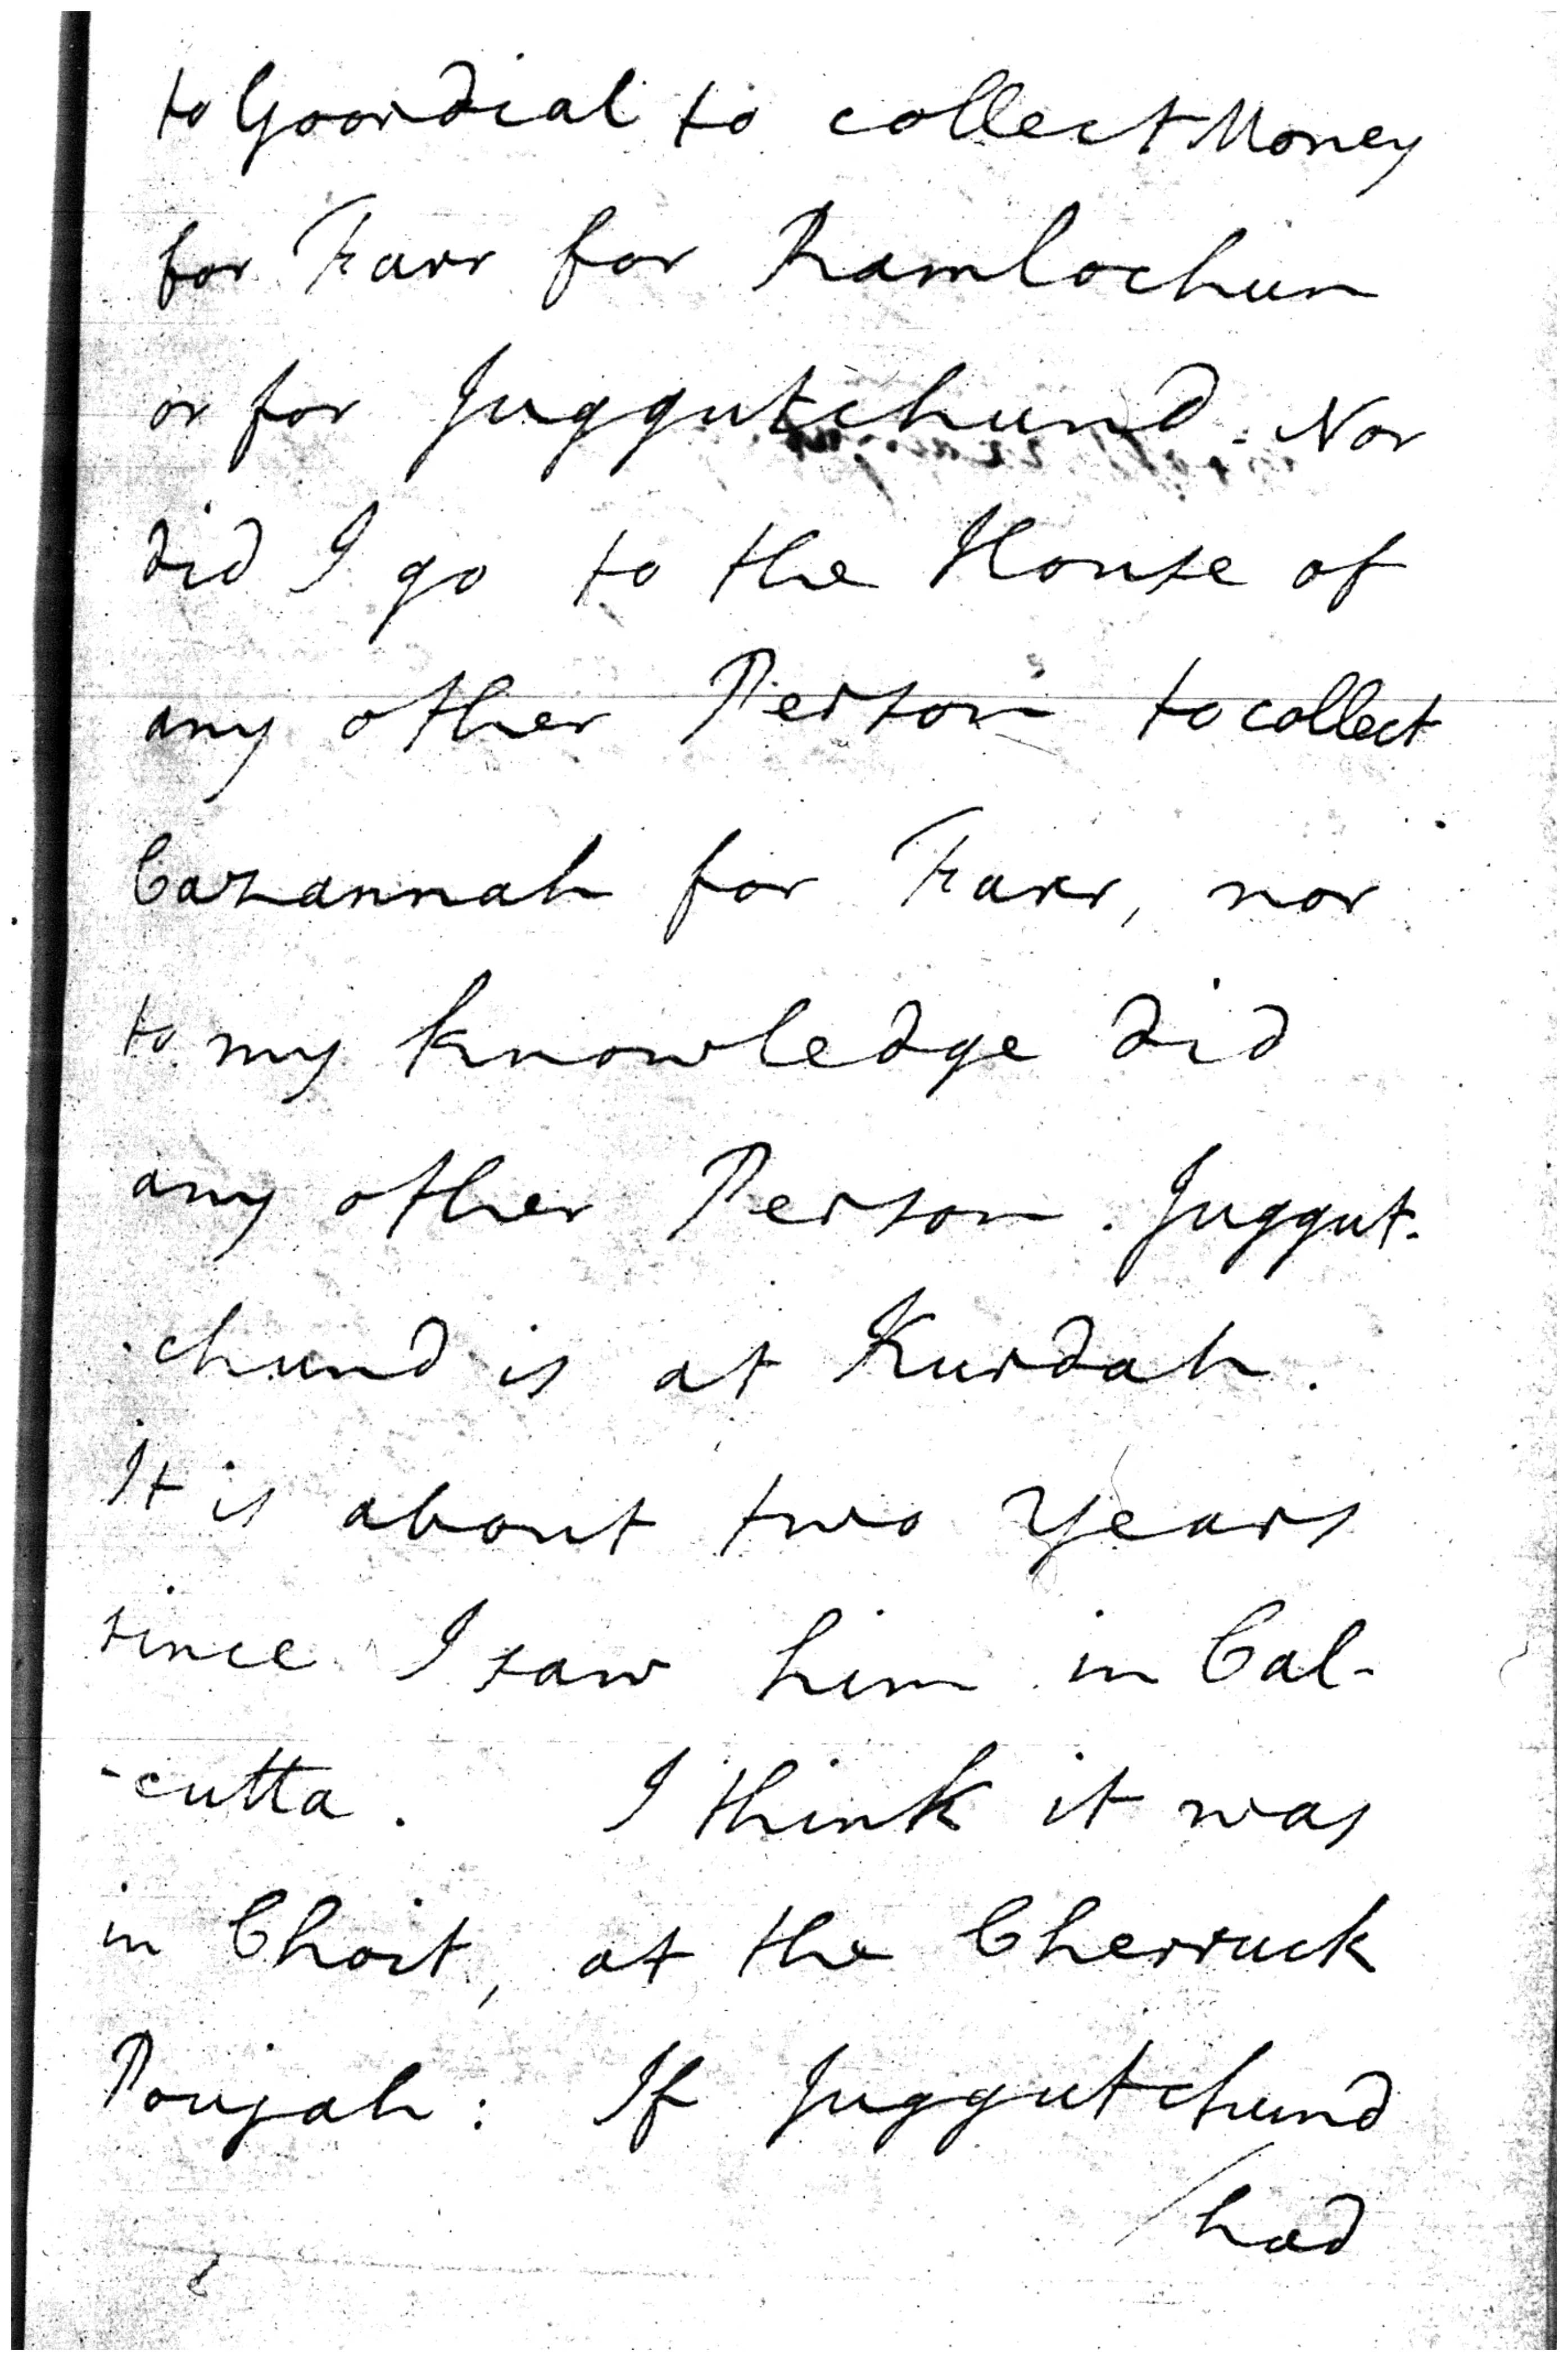 to Goordial to collect Money
for Farr for Ramlochun
or for Juggutchund. Nor
did I go to the House of
any other Person to collect
Cazannah for Farr, nor
to my knowledge did
any other Person. Juggut-
-chund is at Kurdah.
It is about two Years
since I saw him in Cal-
-cutta. I think it was
in Choit, at the Cherruck
Poujah: If Juggutchund
/had